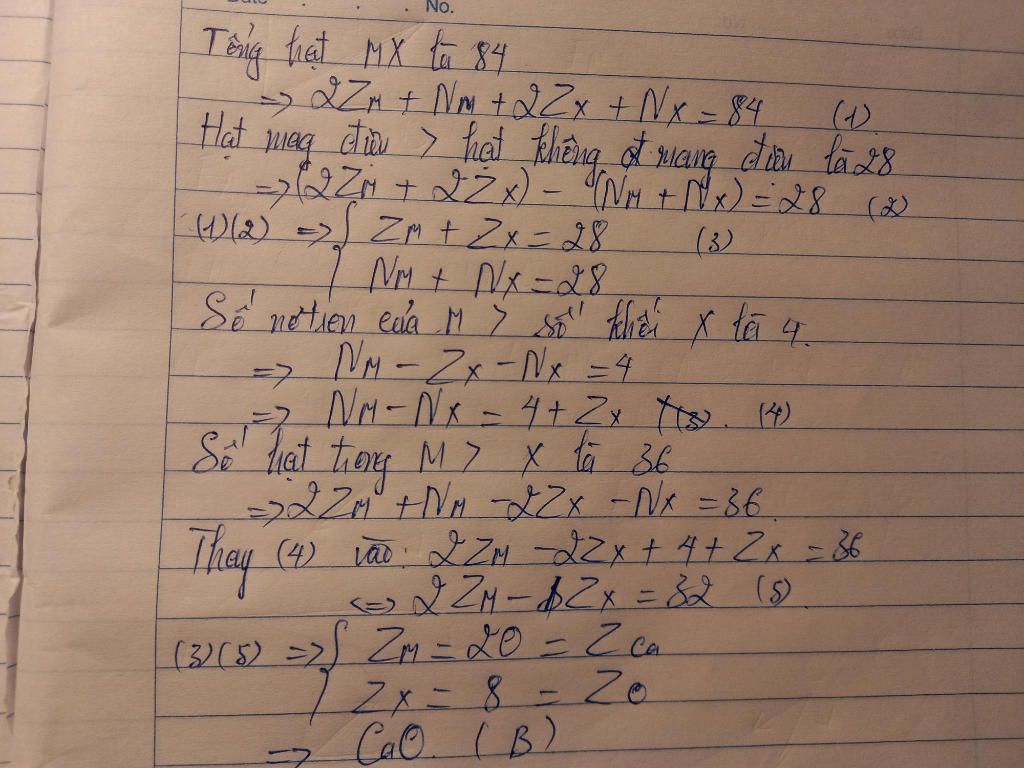 Date . . . No.
Tổng hạt MX là 84
=> 2ZM + NM + 2ZX + NX = 84 (1)
Hạt mag điện > hạt không mang điện là 28
=> (2ZM + 2ZX) - (NM + NX) = 28 (2)
(1)(2) => { ZM + ZX = 28 (3)
NM + NX = 28
Số nơtron của M > số khối X là 4.
=> NM - ZX - NX = 4
=> NM - NX = 4 + ZX (4)
Số hạt trong M > X là 36
=> 2ZM + NM - 2ZX - NX = 36
Thay (4) vào: 2ZM - 2ZX + 4 + ZX = 36
<=> 2ZM - ZX = 32 (5)
(3)(5) => { ZM = 20 = ZCa
ZX = 8 = ZO
=> CaO. (B)